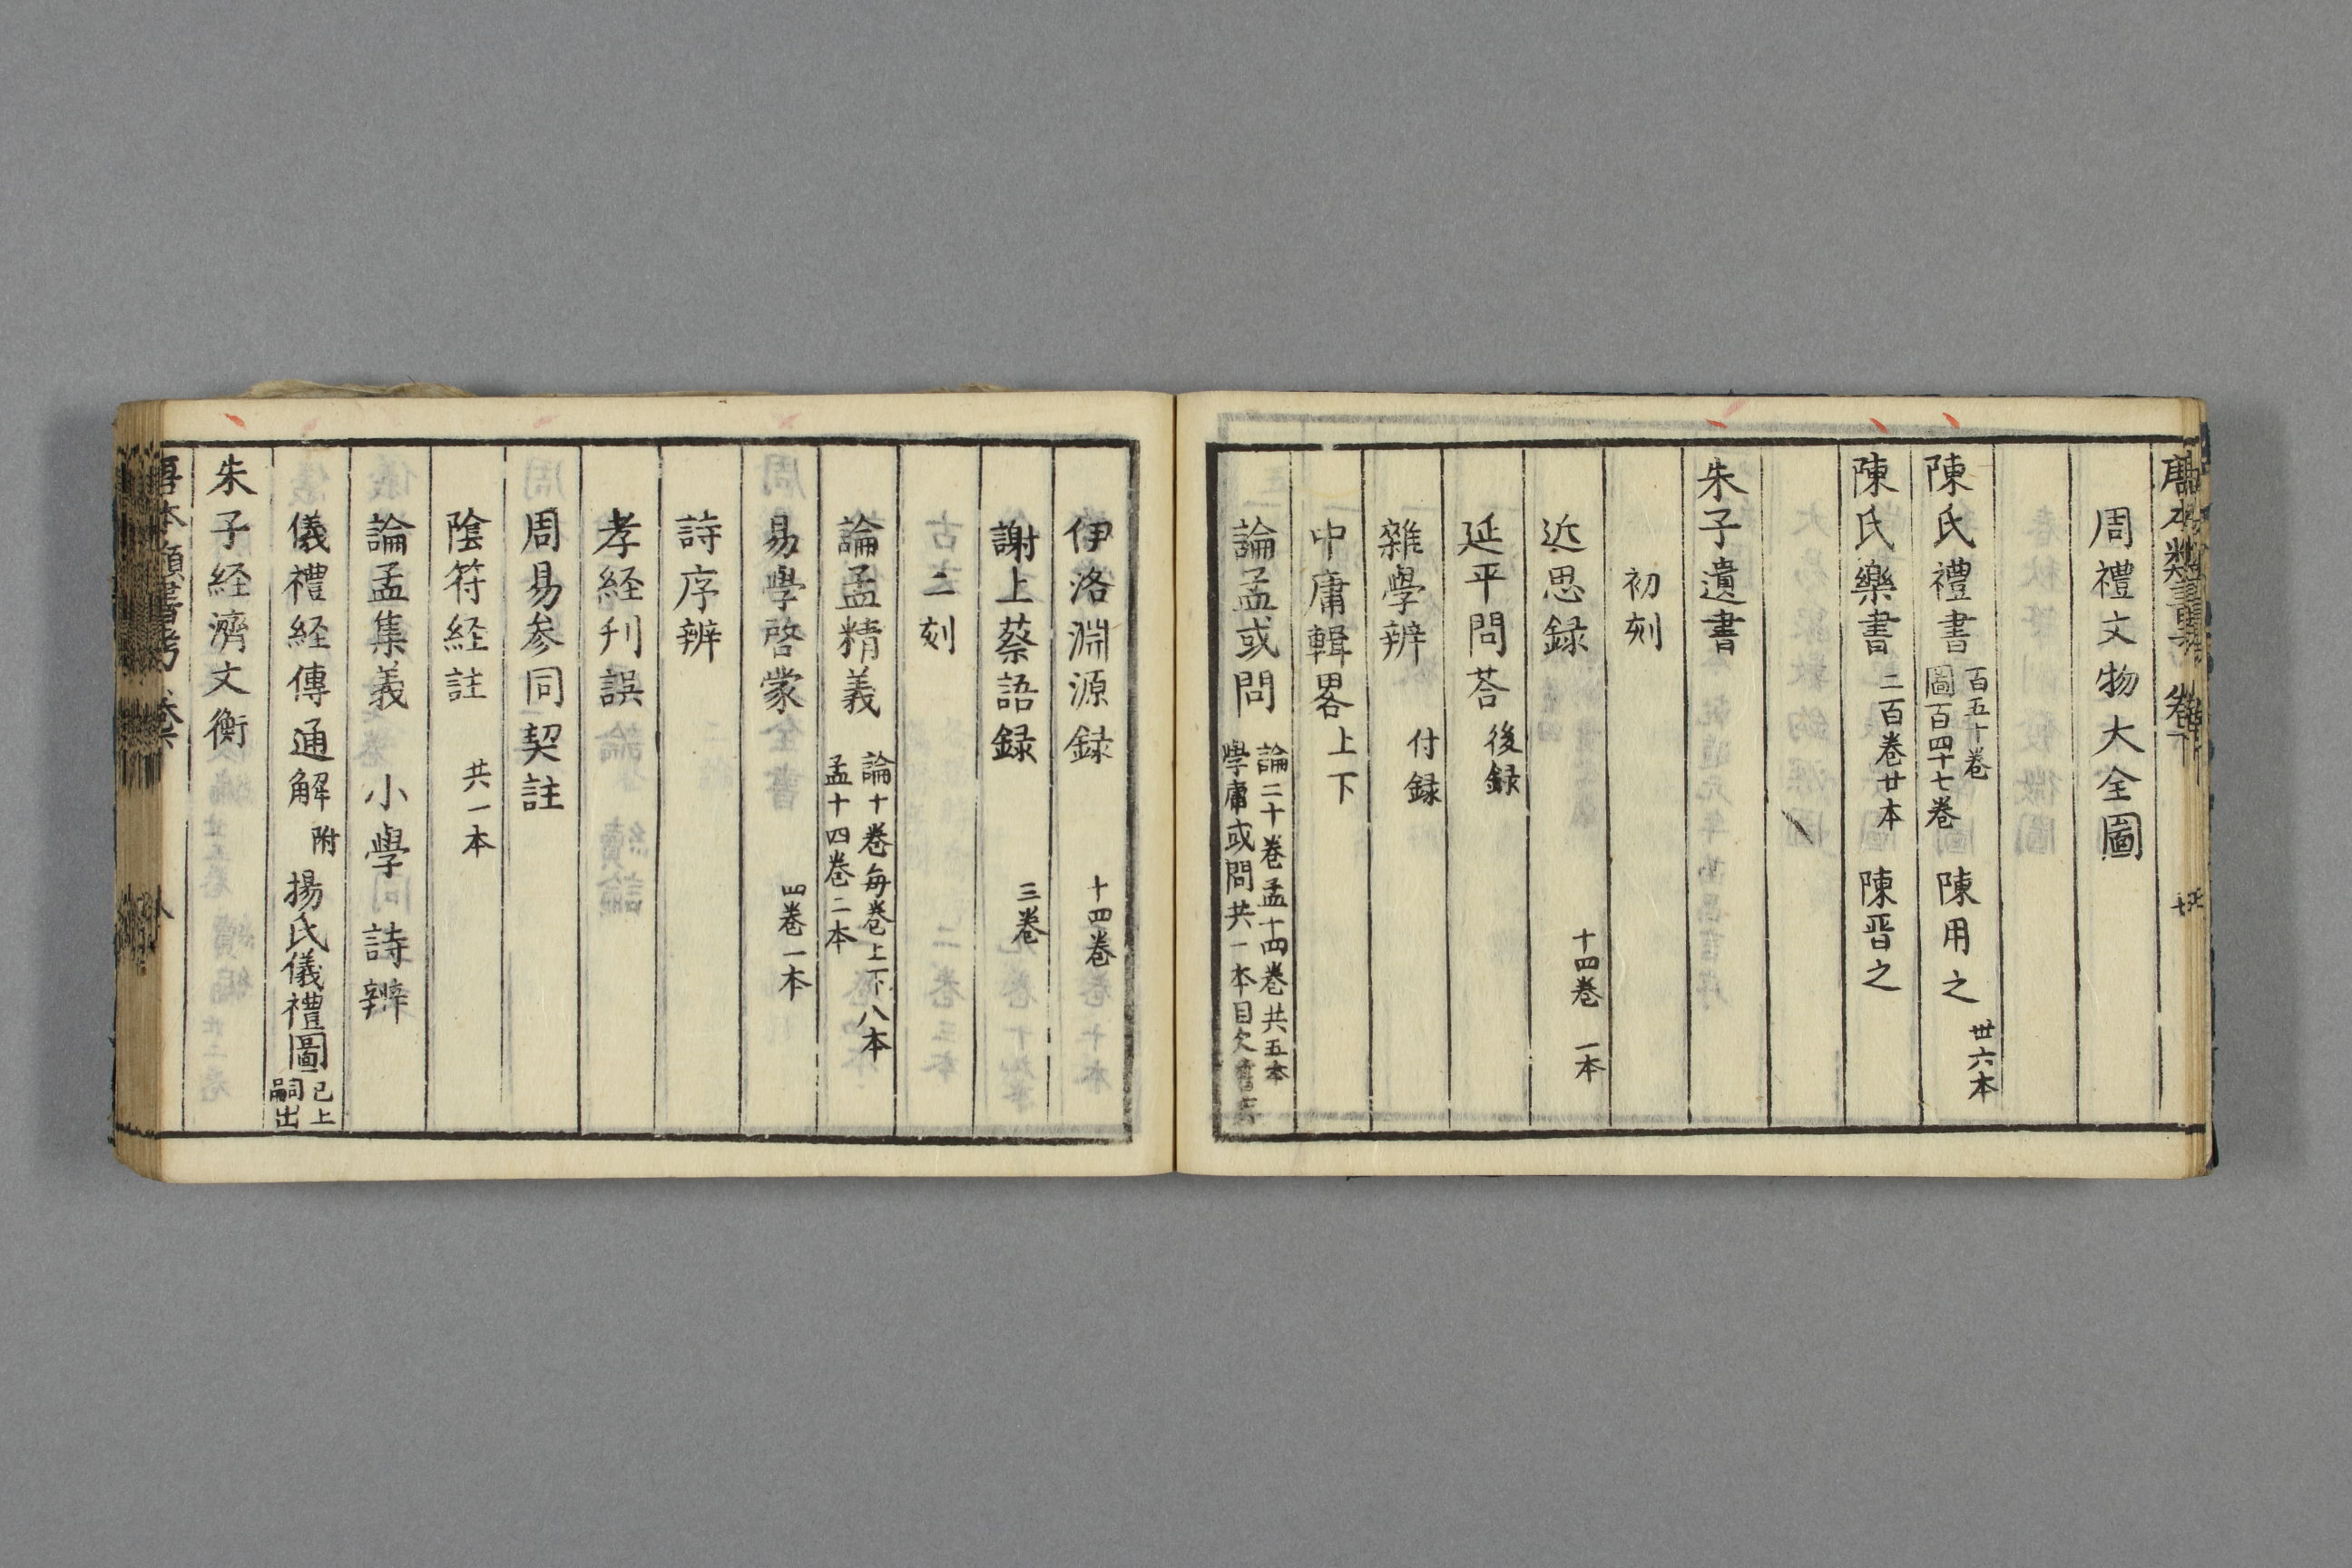 周禮文物大全圖
陳氏禮書 百五十卷 圖百四十七卷 陳用之 卅六本
陳氏樂書 二百卷廿本 陳晋之
朱子遺書
初刻
近思録 十四卷 一本
延平問荅 後録
雜學辨 付録
中庸輯畧上下
論孟或問 論二十卷孟十四卷共五本 學庸或問共一本目欠
伊洛淵源録 十四卷
謝上蔡語録 三卷
二刻
論孟精義 論十卷毎卷上下八本 孟十四卷二本
易學啓蒙 四卷一本
詩序辨
孝経刋誤
周易参同契註
陰符経註 共一本
論孟集義 小學 詩辨
儀禮経傳通解 附 揚氏儀禮圖 已上嗣出
朱子経濟文衡